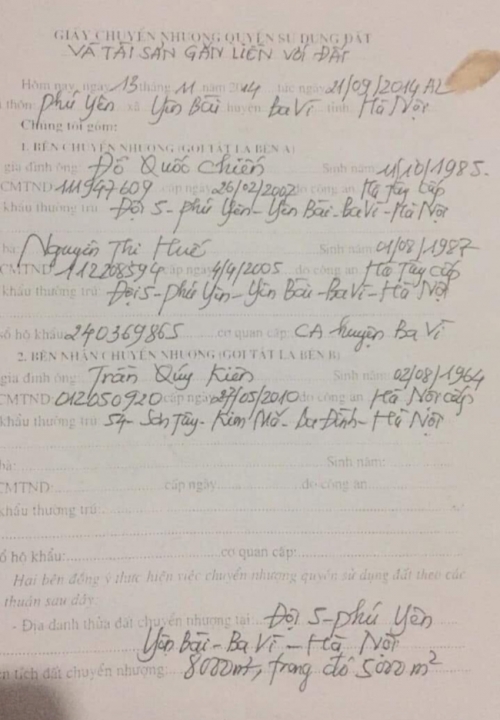 GIẤY CHUYỂN NHƯỢNG QUYỀN SỬ DỤNG ĐẤT
VÀ TÀI SẢN GẮN LIỀN VỚI ĐẤT
Hôm nay, ngày 13 tháng 11 năm 2014 tức ngày 21/09/2014 AL
i thôn: Phú Yên xã Yên Bài huyện: Ba Vì tỉnh: Hà Nội
Chúng tôi gồm:
1. BÊN CHUYỂN NHƯỢNG (GỌI TẮT LÀ BÊN A)
gia đình ông: Đỗ Quốc Chiến Sinh năm: 11/10/1985.
CMTND: 111947609 cấp ngày 26/02/2002 do công an. Hà Tây Cấp
khẩu thường trú: Đội 5 - Phú Yên - Yên Bài - Ba Vì - Hà Nội
bà: Nguyễn Thị Huế Sinh năm: 01/08/1987
CMTND: 112208594 cấp ngày 4/4/2005 do công an: Hà Tây Cấp
khẩu thường trú: Đội 5 - Phú Yên - Yên Bài - Ba Vì - Hà Nội
số hộ khẩu: 240369865 cơ quan cấp: CA huyện Ba Vì
2. BÊN NHẬN CHUYỂN NHƯỢNG (GỌI TẮT LÀ BÊN B)
gia đình ông: Trần Quý Kiên Sinh năm: 02/08/1964
CMTND: 012050920 cấp ngày 27/05/2010 do công an: Hà Nội cấp
khẩu thường trú: 54 - Sơn Tây - Kim Mã - Ba Đình - Hà Nội
bà: Sinh năm:
CMTND: cấp ngày do công an
khẩu thường trú:
ổ hộ khẩu: cơ quan cấp:
Hai bên đồng ý thực hiện việc chuyển nhượng quyền sử dụng đất theo các
thuận sau đây:
- Địa danh thửa đất chuyển nhượng tại: Đội 5 - Phú Yên
Yên Bài - Ba Vì - Hà Nội
ện tích đất chuyển nhượng: 8000m², trong đó 5000m²